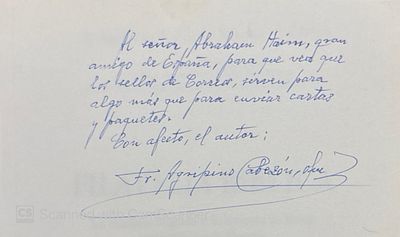 Al señor, Abraham Haim, gran
amigo de España, para que vea que
los sellos de Correos, sirven para
algo más que para enviar cartas
y paquetes.
Con afecto, el autor:
Fr. Agripino Cabezón, ofm
CS Scanned with CamScanner